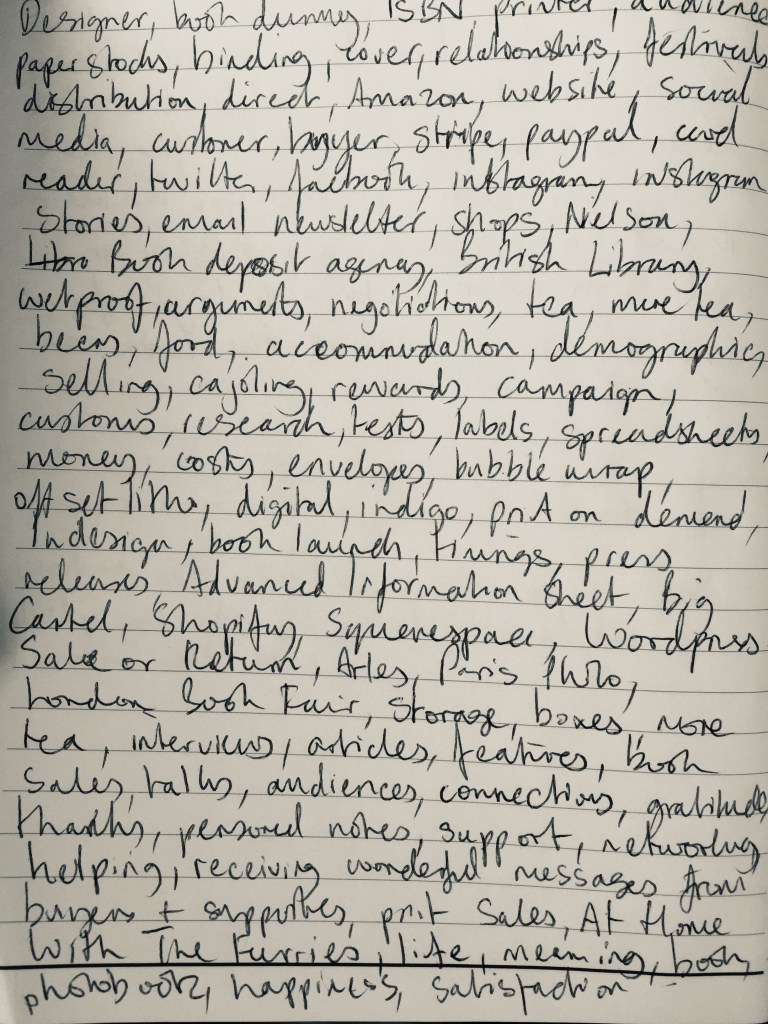 Designer, book dummy, ISBN, printer, audience
paper stocks, binding, cover, relationships, festivals
distribution, direct, Amazon, website, social
media, customer, buyer, stripe, paypal, card
reader, twitter, facebook, instagram, instagram
Stories, email newsletter, shops, Nelson,
Libro Book deposit agency, British Library,
wetproof, arguments, negotiations, tea, more tea,
beers, food, accommodation, demographics,
selling, cajoling, rewards, campaign,
customs, research, tests, labels, spreadsheets,
money, costs, envelopes, bubble wrap,
offset litho, digital, indigo, print on demand,
Indesign, book launch, timings, press
releases, Advanced Information Sheet, Big
Cartel, Shopify, Squarespace, Wordpress
Sale or Return, Arles, Paris Photo,
London Book Fair, Storage, boxes, more
tea, interviews, articles, features, book
sales, talks, audiences, connections, gratitude,
thanks, personal notes, support, networking
helping, receiving wonderful messages from
buyers + supporters, print sales, At Home
With The Furries, life, meaning, book,
photobook, happiness, satisfaction